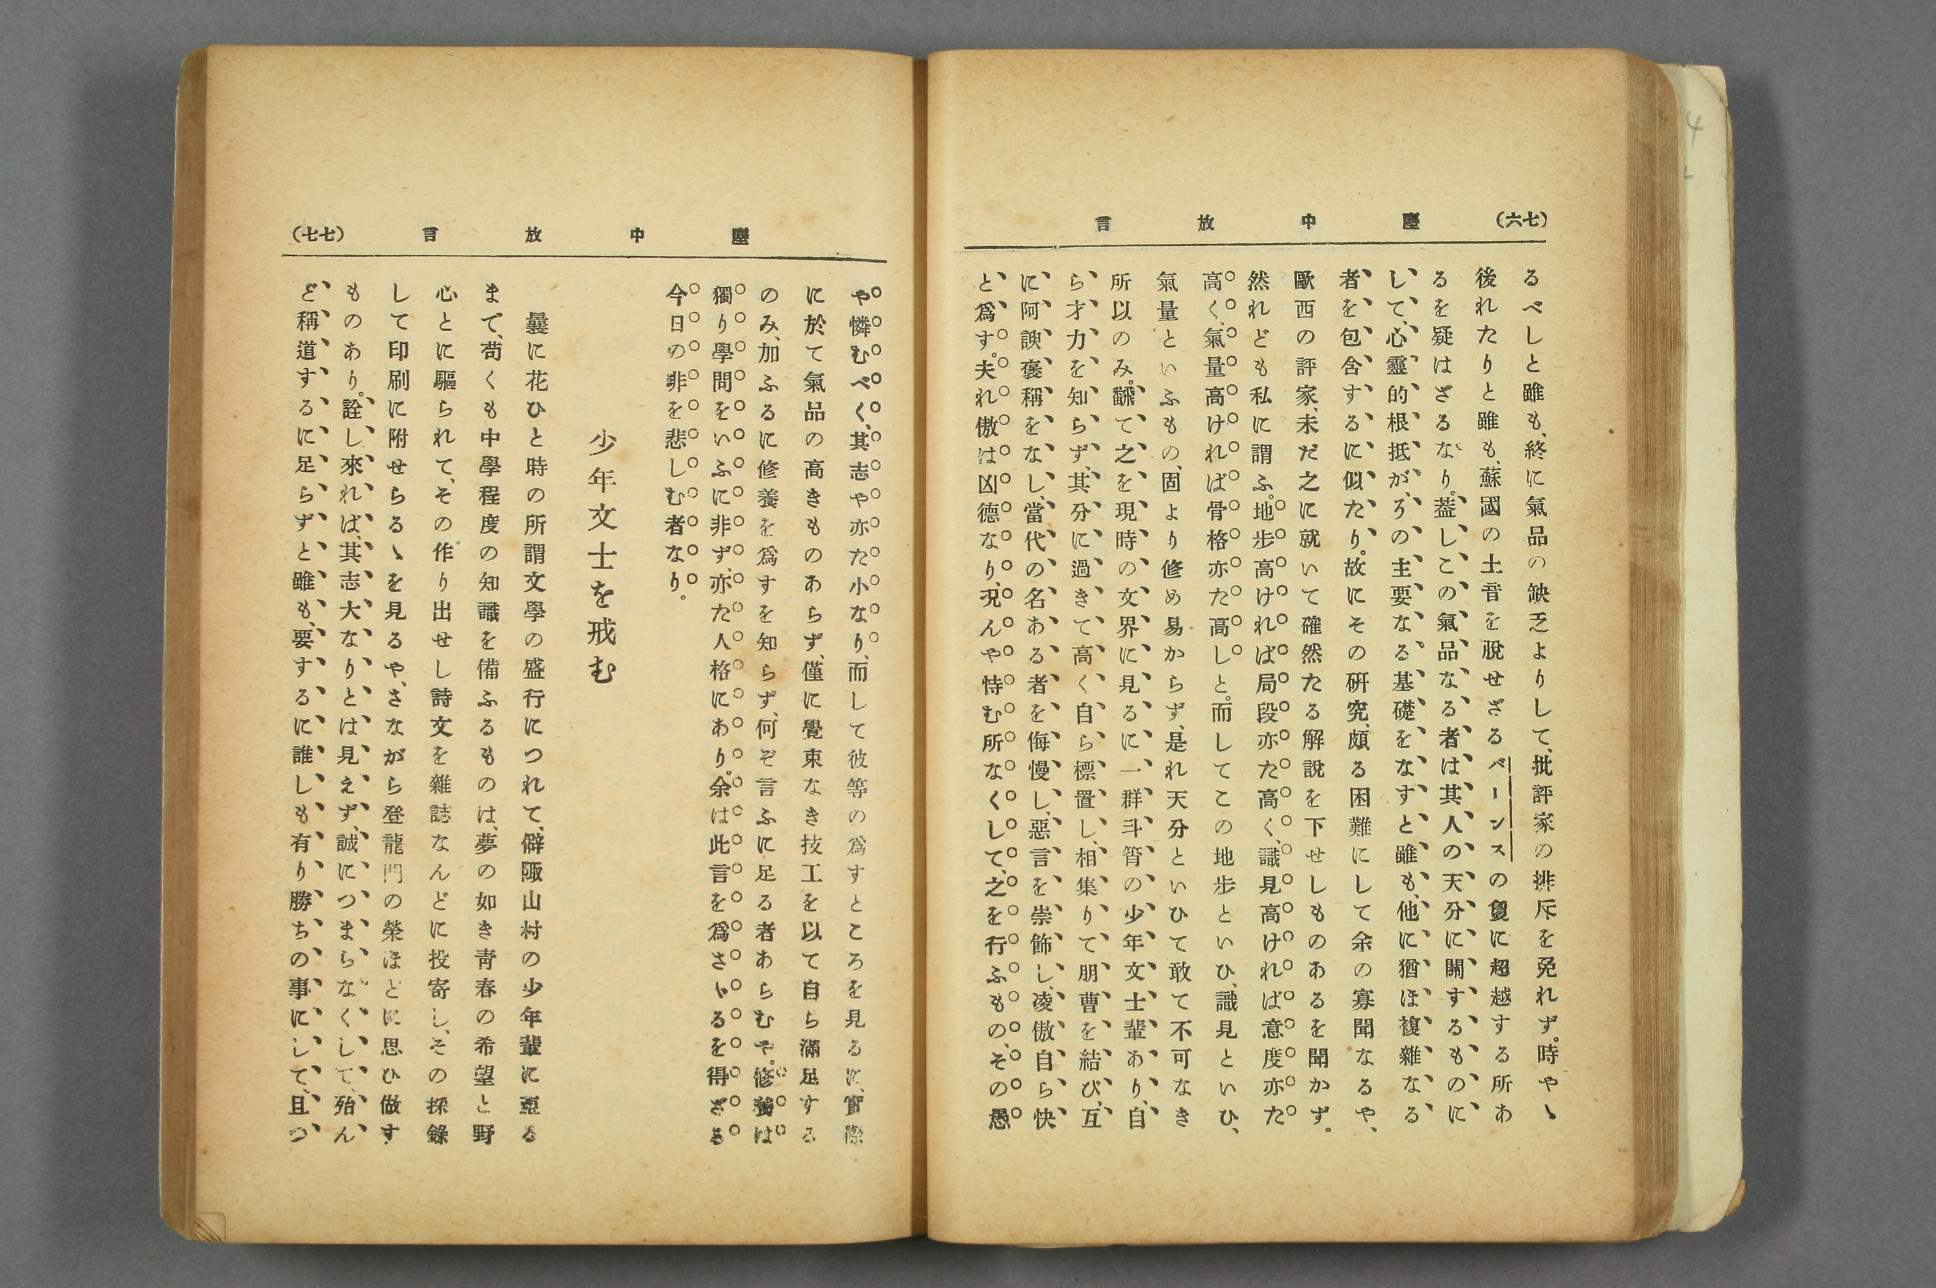 (七六)
塵中放言
るべしと雖も、終に氣品の缺乏よりして、批評家の排斥を免れず。時やゝ
後れたりと雖も、蘇國の土音を脫せざるバーンスの夐に超越する所あ
るを疑はざるなり。蓋しこの氣品なる者は其人の天分に關するものに
して、心靈的根抵が、ろの主要なる基礎をなすと雖も、他に猶ほ複雜なる
者を包含するに似たり。故にその研究、頗る困難にして余の寡聞なるや、
歐西の評家、未だ之に就いて確然たる解說を下せしものあるを聞かず。
然れども私に謂ふ。地步高ければ局段亦た高く、識見高ければ意度亦た
高く、氣量高ければ骨格亦た高しと。而してこの地步といひ、識見といひ、
氣量といふもの、固より修め易からず、是れ天分といひて敢て不可なき
所以のみ。飜て之を現時の文界に見るに、一群斗筲の少年文士輩あり、自
ら才力を知らず、其分に過きて高く自ら標置し、相集りて朋曹を結び、互
に阿諛褒稱をなし、當代の名ある者を侮慢し、惡言を崇飾し、凌傲自ら快
と爲す。夫れ傲は凶德なり、况んや恃む所なくして、之を行ふもの、その愚
塵中放言
(七七)
や憐むべく、其志や亦た小なり、而して彼等の爲すところを見るに、實際
に於て氣品の高きものあらず、僅に覺束なき技工を以て自ら滿足する
のみ、加ふるに修養を爲すを知らず、何ぞ言ふに足る者あらむや。修養は
獨り學問をいふに非ず、亦た人格にあり。余は此言を爲さゝるを得ざる
今日の非を悲しむ者なり。
少年文士を戒む
曩に花ひと時の所謂文學の盛行につれて、僻陬山村の少年輩に至る
まで、苟くも中學程度の知識を備ふるものは、夢の如き靑春の希望と野
心とに驅られて、その作り出せし詩文を雜誌なんどに投寄し、その採錄
して印刷に附せらるゝを見るや、さながら登龍門の榮ほどに思ひ做す
ものあり。詮し來れば、其志大なりとは見えず、誠につまらなくして、殆ん
ど稱道するに足らずと雖も、要するに誰しも有り勝ちの事にして、且つ